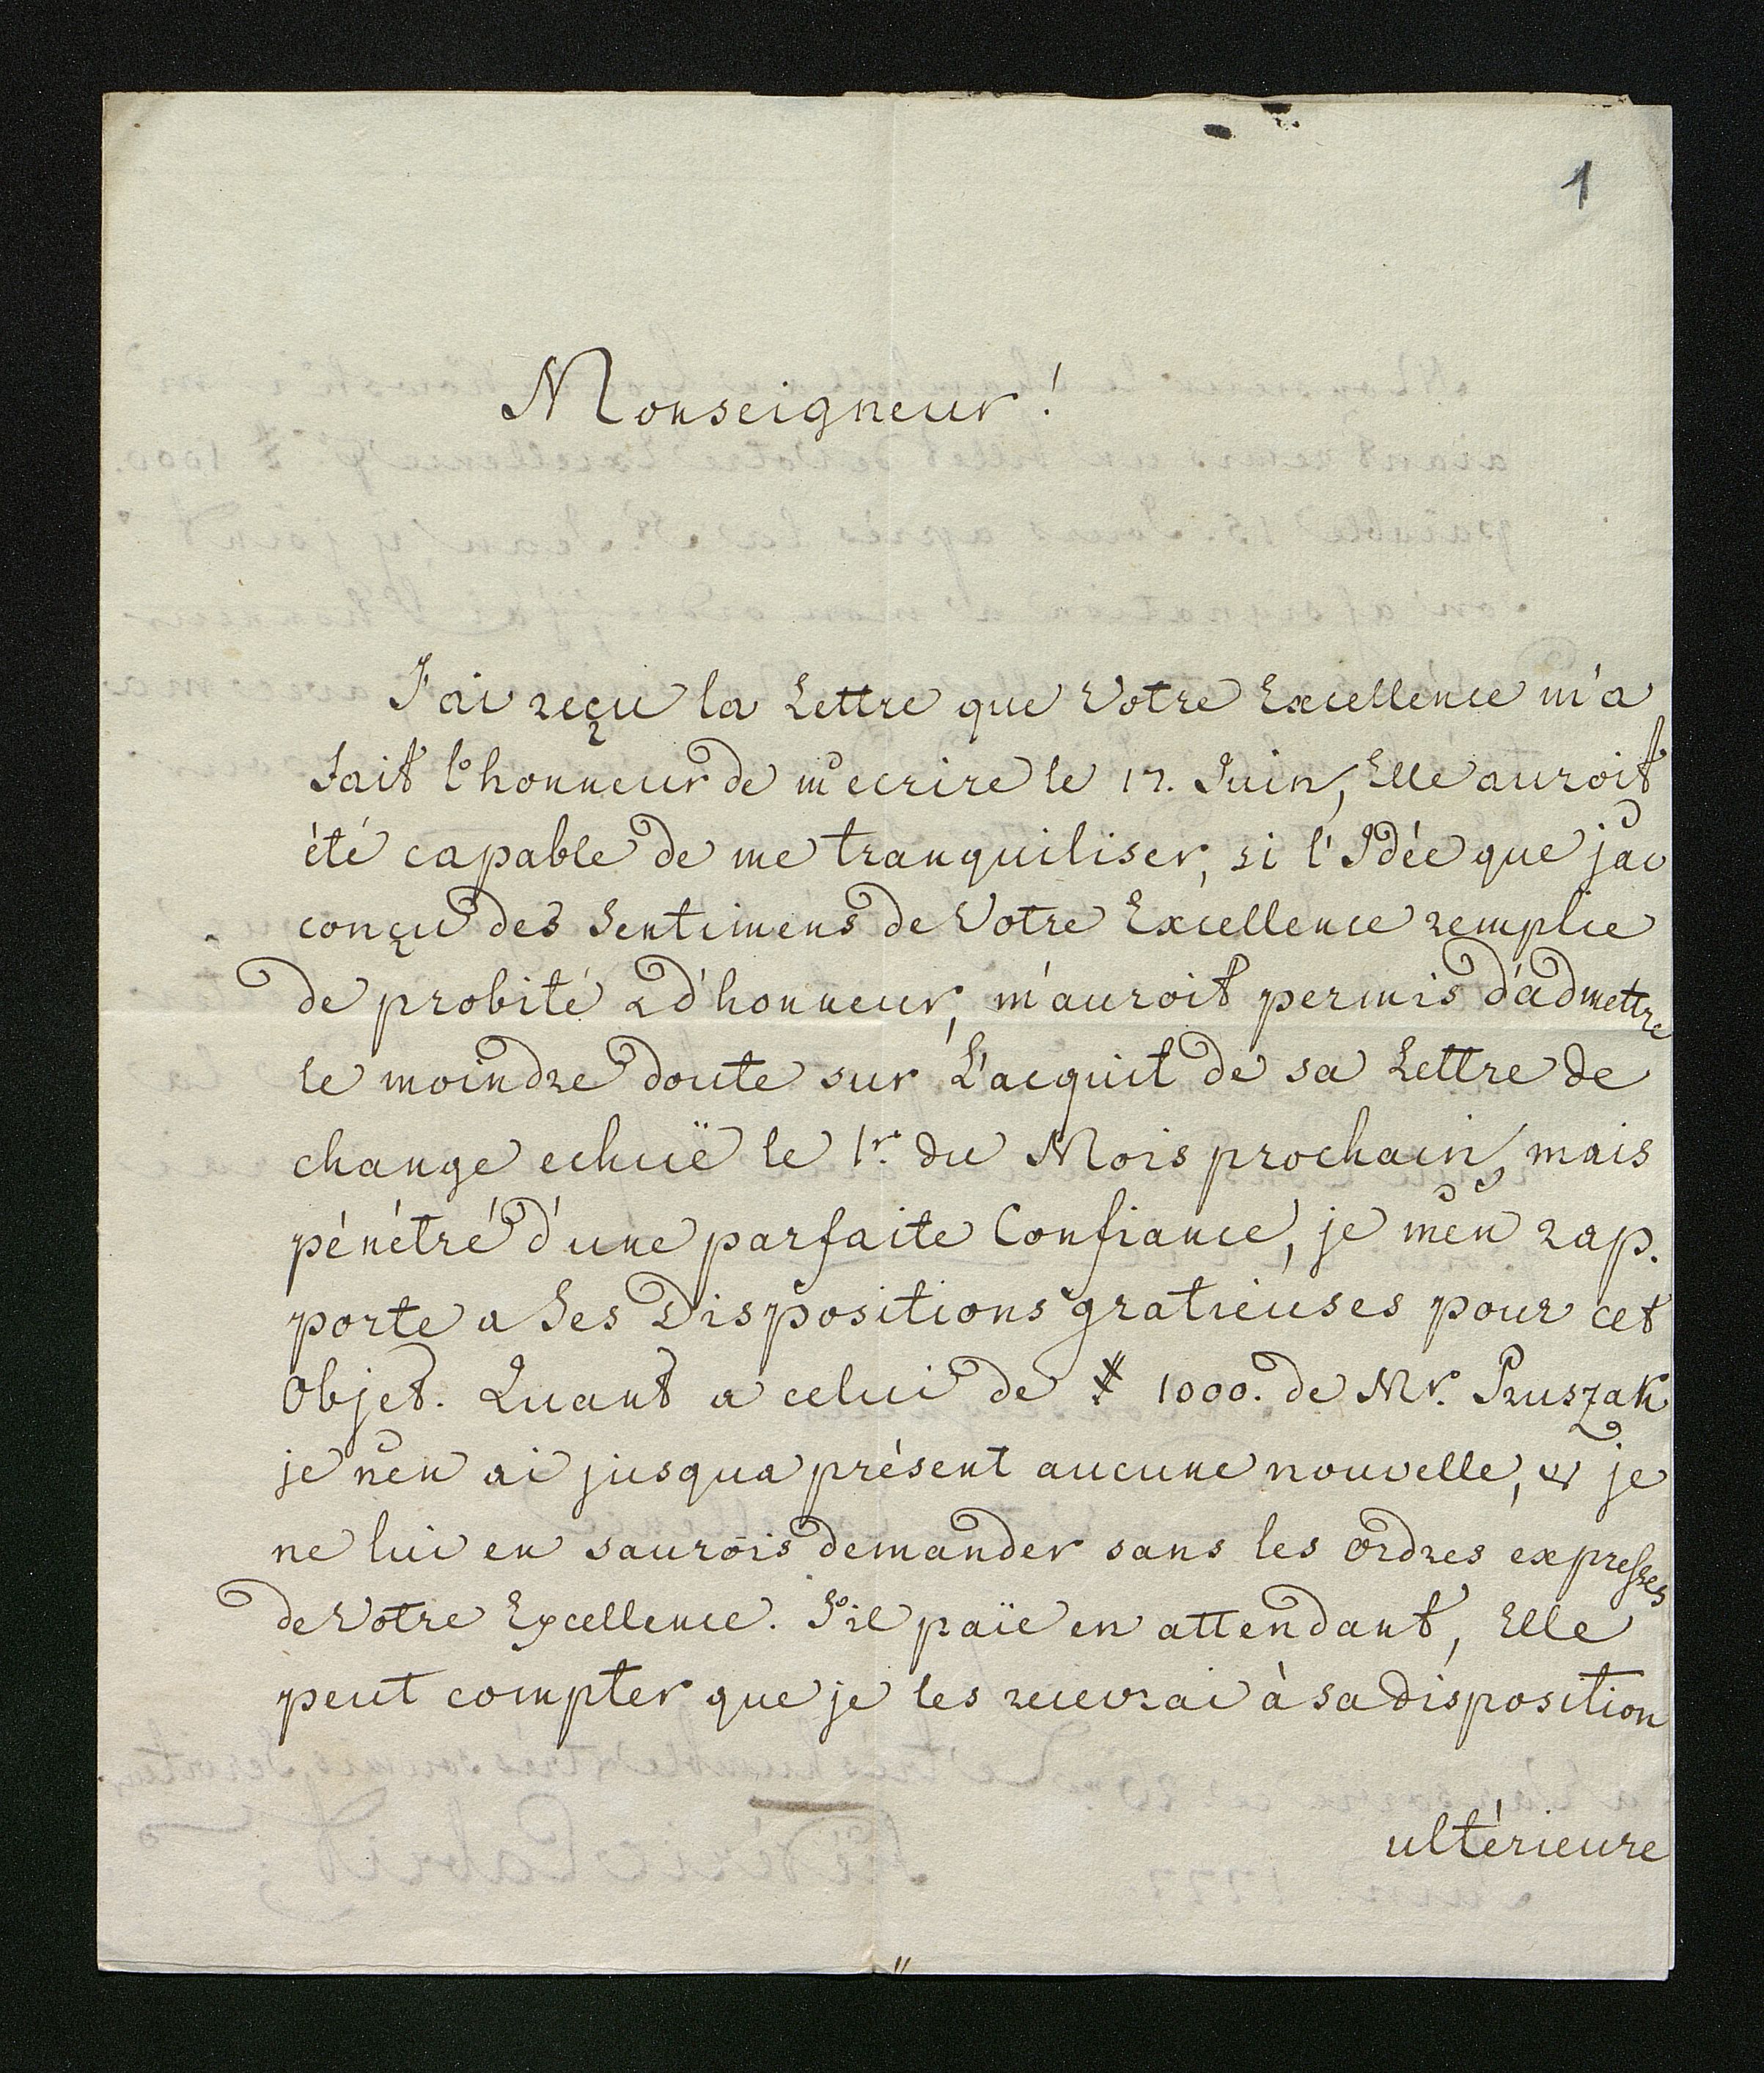 1
Monseigneur!
J'ai reçu la Lettre que Votre Excellence m'a
fait l'honneur de m'ecrire le 17. Juin, Elle auroit
été capable de me tranquiliser, si l'Idée que j'ai
conçu des Sentimens de Votre Excellence remplie
de probité & d'honneur, m'auroit permis d'admettre
le moindre doute sur L'acquit de sa Lettre de
change echuë le 1r. du Mois prochain, mais
pénétré d'une parfaite Confiance, je m'en rap.
porte a Ses Dispositions gratieuses pour cet
Objet. Quant a celui de # 1000. de Mr. Pruszak
je n'en ai jusqua présent aucune nouvelle, & je
ne lui en saurois demander sans les ordres expresses
de Votre Excellence. S'il païe en attendant, Elle
peut compter que je les recevrai à sa disposition
ultérieure